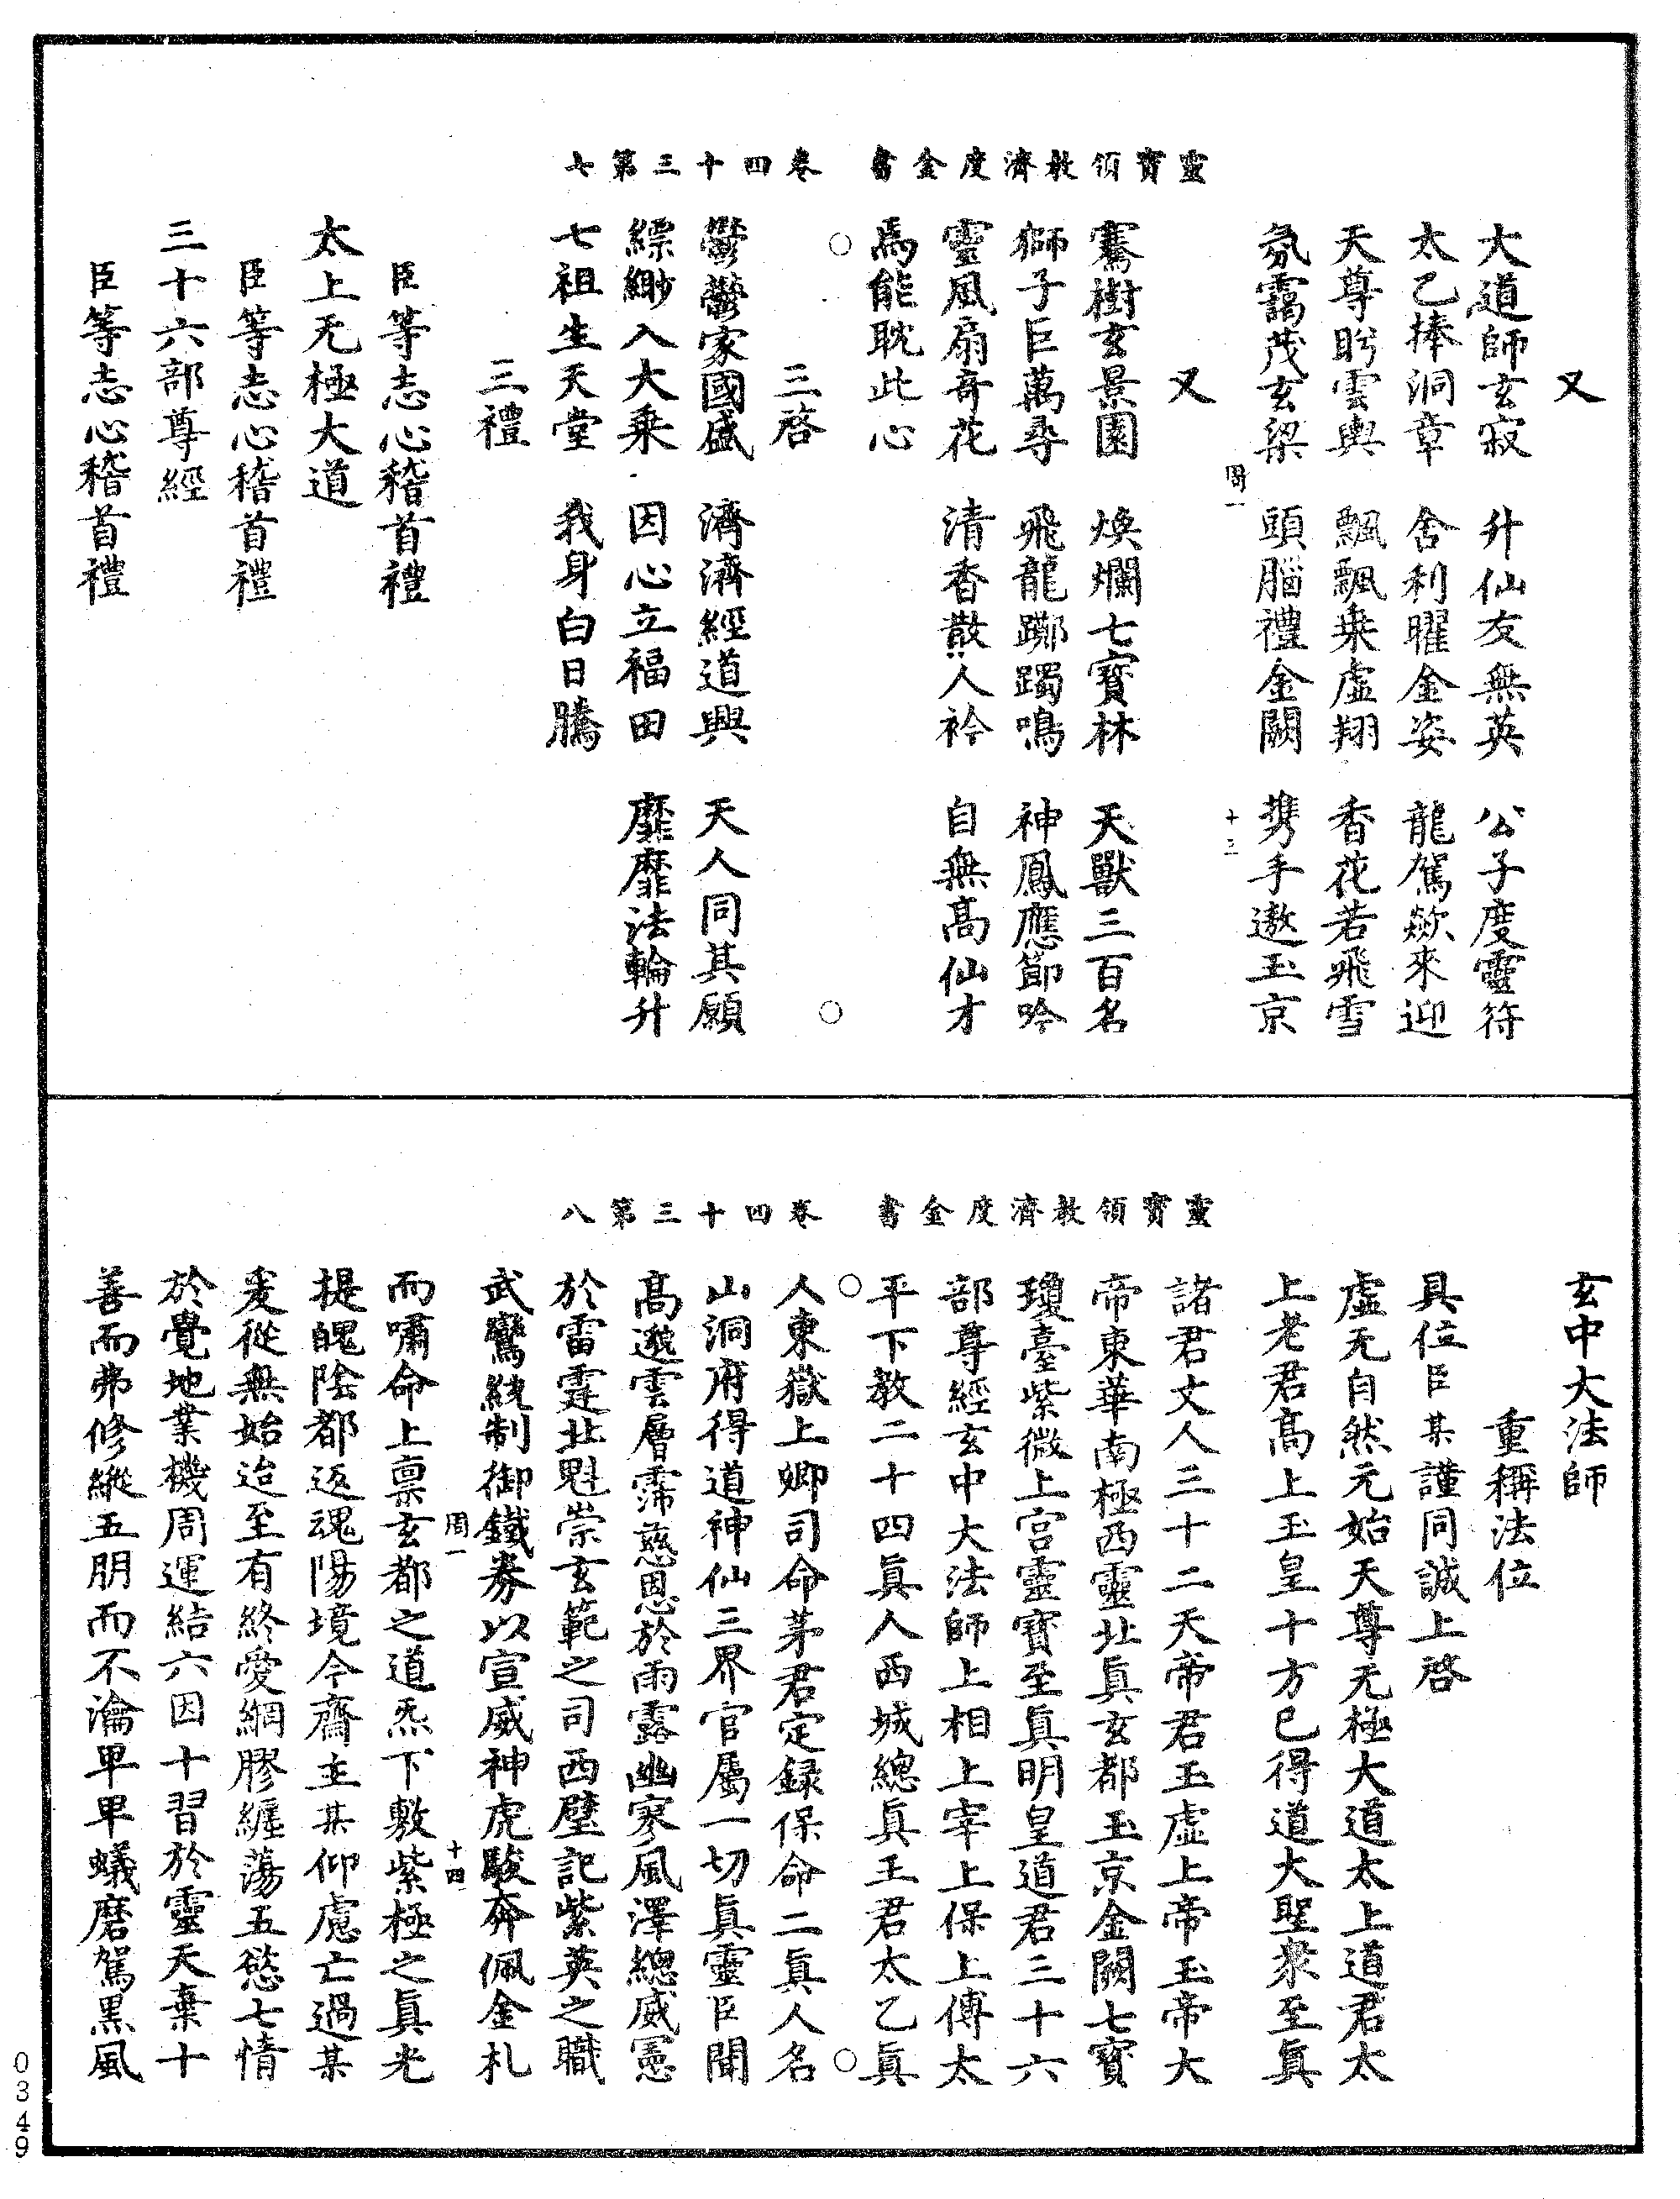 靈寶領教濟度金書　卷四十三第七
又
大道師玄寂　升仙友無英　公子度靈符
太乙捧洞章　舍利曜金姿　龍駕欻來迎
天尊眄雲輿　飄飄乘虛翔　香花若飛雪
氛靄茂玄梁　頭腦禮金闕　携手遨玉京
周一　十三
又
騫樹玄景園　煥爛七寶林　天獸三百名
獅子巨萬尋　飛龍躑躅鳴　神鳳應節吟
靈風扇奇花　清香散人衿　自無高仙才
焉能耽此心
三啓
鬱鬱家國盛　濟濟經道興　天人同其願
縹緲入大乘　因心立福田　靡靡法輪升
七祖生天堂　我身白日騰
三禮
臣等志心稽首禮
太上无極大道
臣等志心稽首禮
三十六部尊經
臣等志心稽首禮
靈寶領教濟度金書　卷四十三第八
玄中大法師
重稱法位
具位臣某謹同誠上啓
虛无自然元始天尊无極大道太上道君太
上老君高上玉皇十方已得道大聖衆至眞
諸君丈人三十二天帝君玉虛上帝玉帝大
帝東華南極西靈北眞玄都玉京金闕七寶
瓊臺紫微上宮靈寶至眞明皇道君三十六
部尊經玄中大法師上相上宰上保上傅太
平下教二十四眞人西城總眞王君太乙眞
人東嶽上卿司命茅君定錄保命二眞人名
山洞府得道神仙三界官屬一切眞靈臣聞
高邈雲層霈慈恩於雨露幽寥風澤總威憲
於雷霆北魁崇玄範之司西壁記紫英之職
武鸞統制御鐵券以宣威神虎駿奔佩金札
周一　十四
而嘯命上稟玄都之道炁下敷紫極之眞光
提魄陰都返魂陽境今齋主某仰慮亡過某
爰從無始迨至有終愛網膠纏蕩五慾七情
於覺地業機周運結六因十習於靈天棄十
善而弗修縱五朋而不瀹早早蟻磨駕黑風
0349